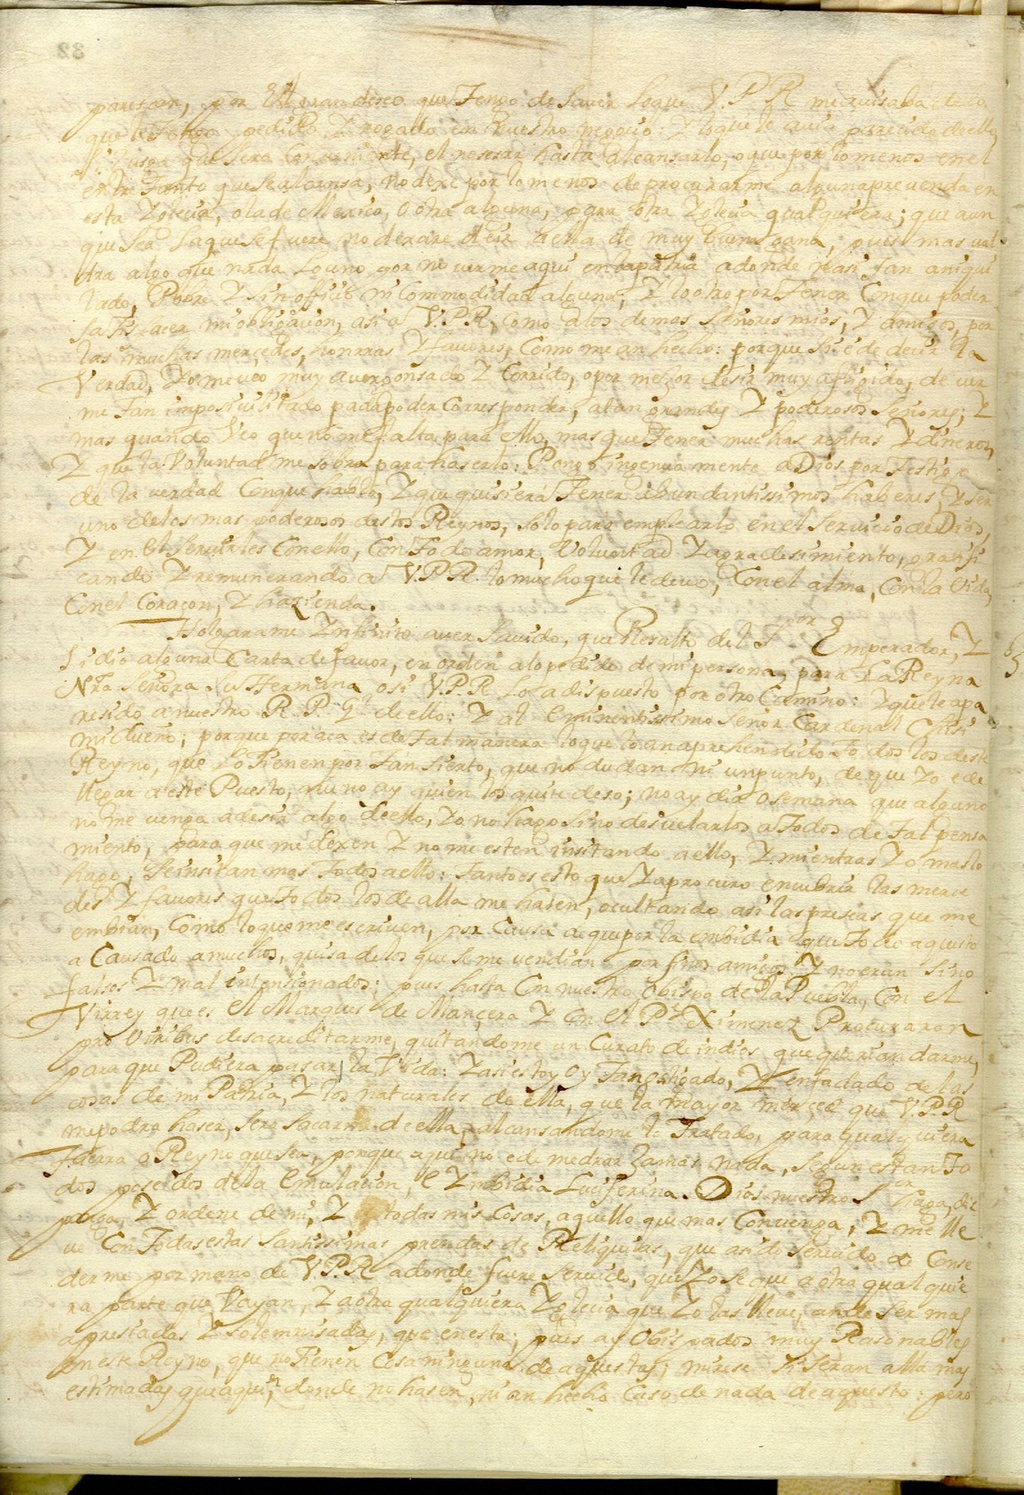 paresen, por el gran deseo que Tengo de saver loque V.P.R me avisaba de lo
que le Tengo pedido, Y rogado en Nuestro negocio: Y loque le avia paresido de ello,
Jusga que sera Conveniente, el nosesar hasta alcansarlo, o que por lo menos en el
entre Tanto que sealcansa, no dexe por lo menos de procurarme alguna prevenda en
esta Yglecia, o la de Mexico, o otra alguna, o gra otra Yglecia qualquiera; que aun
que sea laque se fuere no dexare de ir a ella de muy buena gana, pues mas val
dra algo que nada Lo uno por no verme aqui en la patria adonde nasi Tan aniqui
lado, Pobre Y sin offisio ni Commodidad alguna, Y lo otro por Tener Conque poder
satisfacer mi obligacion, asi a V.P.R, Como a los demas Señores mios, Y amigos, por
las muchas mercedes, honrras Y favores, Como me an hecho: porque si e de decir la
Verdad, Yo me veo muy avergonsado Y Corrido, o por mejor desir muy afligido, de ver
me Tan imposivilitado para poder Corresponder, a tan grandes Y poderosos Señores; Y
mas quando Veo que no me falta para ello, mas que Tener muchas rentas Y dineros,
Y que la Voluntad me sobra para haserlo: Pongo ingenuamente a Dios por Testigo
de la verdad Conque hablo, Y que quisiera Tener abundantissimos haberes, Y ser
uno delos mas poderosos destos Reynos, solo para emplearlo en el servicio de Dios,
Y en el servirles Con ello, Con Todo amor, Voluntad Y agradesimiento, gratifi
cando Y remunerando a V.P.R. lo mucho que le devo, Con el alma, Con la Vida,
Con el Coraçon, Y hazienda.
Holgarame Ynfinito aver Savido, que Resalto del Señor Emperador, Y
si dio alguna Carta de favor, en orden alo pedido de mi persona, para La Reyna
Nra Señora su Hermana, o si V.P.R. Lo a dispuesto por otro Camino: Y que le a pa
residō a nuestro R.P.Gl de ello: Y al Eminentissimo señor Cardenal Chisi
mi dueño; porque por aca es de Tal manera loque lo an aprehendido To dos los deste
Reyno, que Lo Tienen por Tan sierto, que no dudan ni un punto, de que Yo e de
llegar a este Puesto, que no ay quien los quite deso; no ay dia o semana que alguno
no me venga a desir algo de ello, Yo no hago sino desvelarlos a Todos de Tal pensa
miento, para que me dexen Y no me esten insitando a ello, Y mientras Yo mas lo
hago, se insitan mas Todos a ello: Tanto es esto que Ya procuro encubrir las merce
des Y favores que Todos los de alla me hasen, ocultando asi las presas que me
embian, Como loque me escriven, por Causa de que por la embidia que Todo aquesto
a Causado a muchos, quisa de los que se me vendian por finos amigos Y no eran sino
falsos Y mal intensionados; pues hasta Con nuestro obispo de la Puebla, Con el
Virrey que es el Marques de Mançera Y Con el Pe Ximenez Procuraron
pro viribus desacreditarme, quitandome un Curato de indios que querian darme,
para que Pudiera pasar la Vida: Y asi estoy oy Tan ostigado, Y enfadado de las
cosas de mi Patria, Y los naturales de ella, que la mayor merced que V.P.R
me podra haser, sera sacarme de ella, alcansandome lo Tratado, para qualquiera
Tierra o Reyno que sea, porque aqui no e de medrar Jamas nada, segun estan To
dos poseidos de la Emulacion, e Ynbidia Luciferina. Dios nuestro Señor haga, dis
ponga Y ordene de mi, Y de todas mis Cosas, aquello que mas Convenga, Y me lle
ve Con Todas estas santissimas prendas de Reliquias, que a sido servido de Conse
derme por mano de V.P.R adonde fuere servido, que Yo se que a otra qualquie
ra parte que Vayan, Y a otra qualquiera Yglecia que Yo las lleve, an de ser mas
apresiadas Y solemnisadas, que en esta; pues ay obispados muy Rasonables
en este Reyno, que no Tienen Cosa ninguna de aquestas; mirese si seran alla mas
estimadas que aqui, donde no hasen, ni an hecho Caso de nada de aquesto: pero